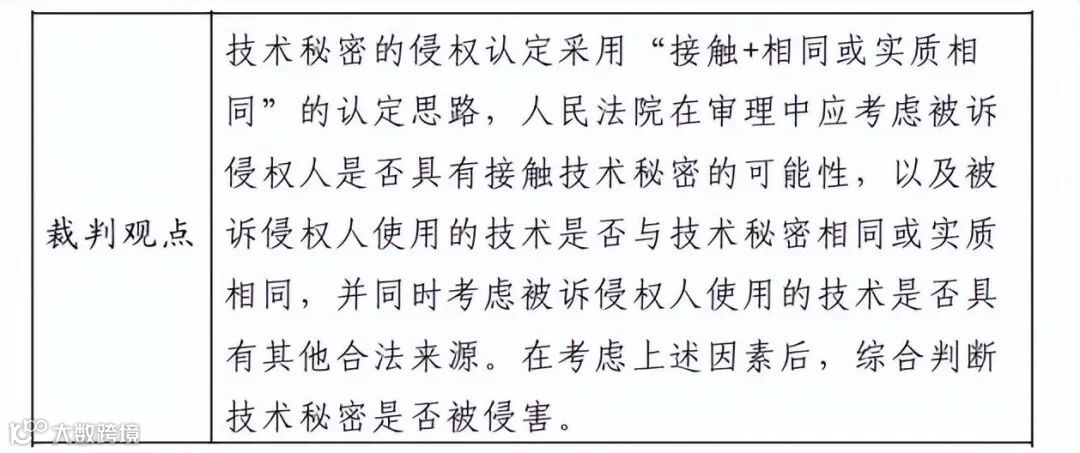 技术秘密的侵权认定采用“接触+相同或实质相
同”的认定思路，人民法院在审理中应考虑被诉
侵权人是否具有接触技术秘密的可能性，以及被
裁判观点
诉侵权人使用的技术是否与技术秘密相同或实质
相同，并同时考虑被诉侵权人使用的技术是否具
有其他合法来源。在考虑上述因素后，综合判断
技术秘密是否被侵害。
大数跨境